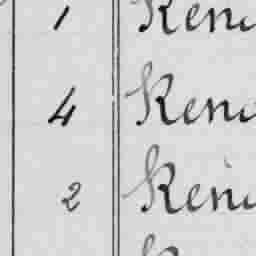 1 Ken
4 Ken
2 Ken